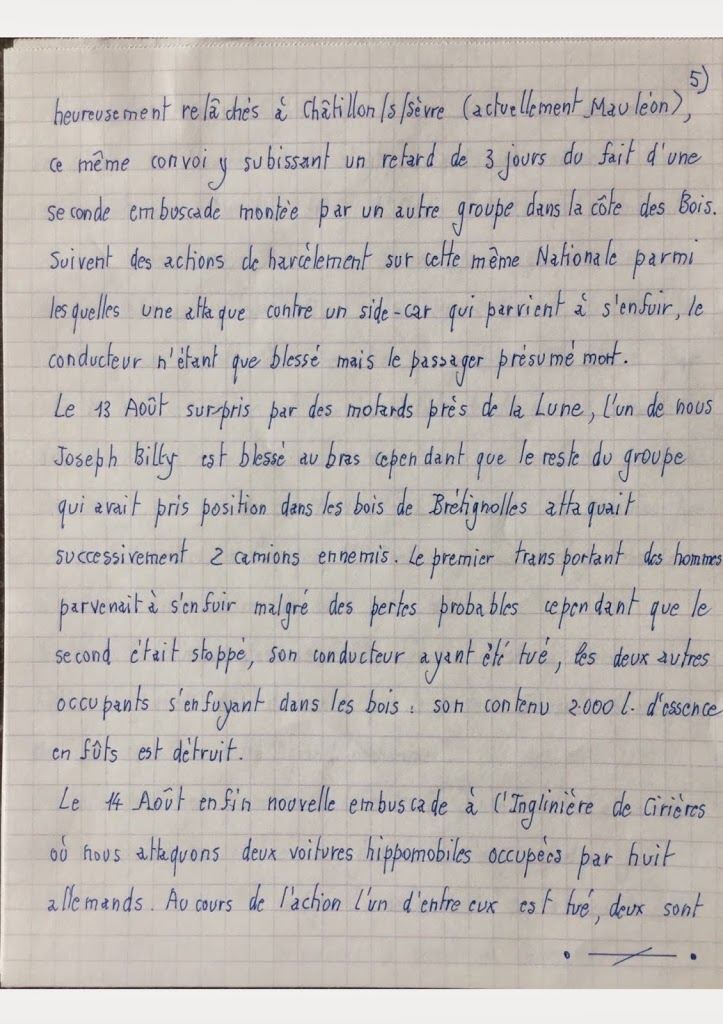 5)
heureusement relâchés à Châtillon/s/sèvre (actuellement Mauléon),
ce même convoi y subissant un retard de 3 jours du fait d'une
seconde embuscade montée par un autre groupe dans la côte des Bois.
Suivent des actions de harcèlement sur cette même Nationale parmi
lesquelles une attaque contre un side-car qui parvient à s'enfuir, le
conducteur n'étant que blessé mais le passager présumé mort.
Le 13 Août surpris par des motards près de la Lune, l'un de nous
Joseph Billy est blessé au bras cependant que le reste du groupe
qui avait pris position dans les bois de Brétignolles attaquait
successivement 2 camions ennemis. Le premier transportant des hommes
parvenait à s'enfuir malgré des pertes probables cependant que le
second était stoppé, son conducteur ayant été tué, les deux autres
occupants s'enfuyant dans les bois : son contenu 2.000 l. d'essence
en fûts est détruit.
Le 14 Août enfin nouvelle embuscade à l'Inglinière de Cirières
où nous attaquons deux voitures hippomobiles occupées par huit
allemands. Au cours de l'action l'un d'entre eux est tué, deux sont